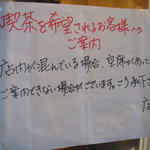 喫茶を希望されるお客様へ
ご案内
店内が混んでいる場合、空席があって
ご案内できない場合がございます。ご了承下
店